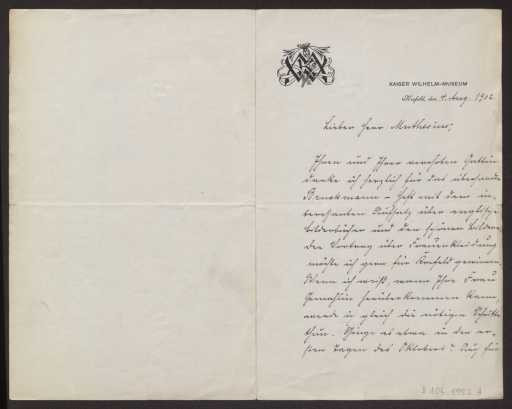 KAISER WILHELM-MUSEUM
Krefeld, den 4. Aug. 1902
Lieber Herr Muthesius,
Ihnen und Ihrer verehrten Gattin
danke ich herzlich für das übersandte
Bruckmann-Heft mit dem in-
teressanten Aufsatz über englische
Bilderbücher und den schönen Bildern.
Den Vortrag über Frauenkleidung
möchte ich gern für Krefeld gewinnen.
Wenn ich weiß, wann Ihre Frau
Gemahlin herüberkommen kann,
werde ich gleich die nötigen Schritte
thun. Ginge es etwa in den er-
sten Tagen des Oktobers? Auch für